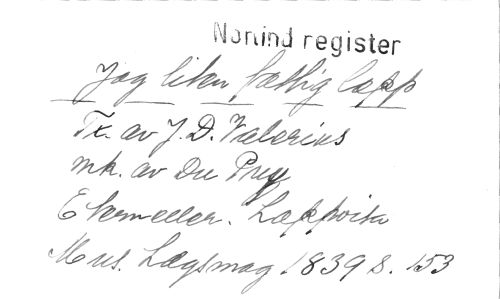 Norlind register
Jag liten fattig lapp
Tx. av J. D. Valerius
mk. av Du Puy
E. Lappvisa
Mus. Lagsmag 1839 s. 153